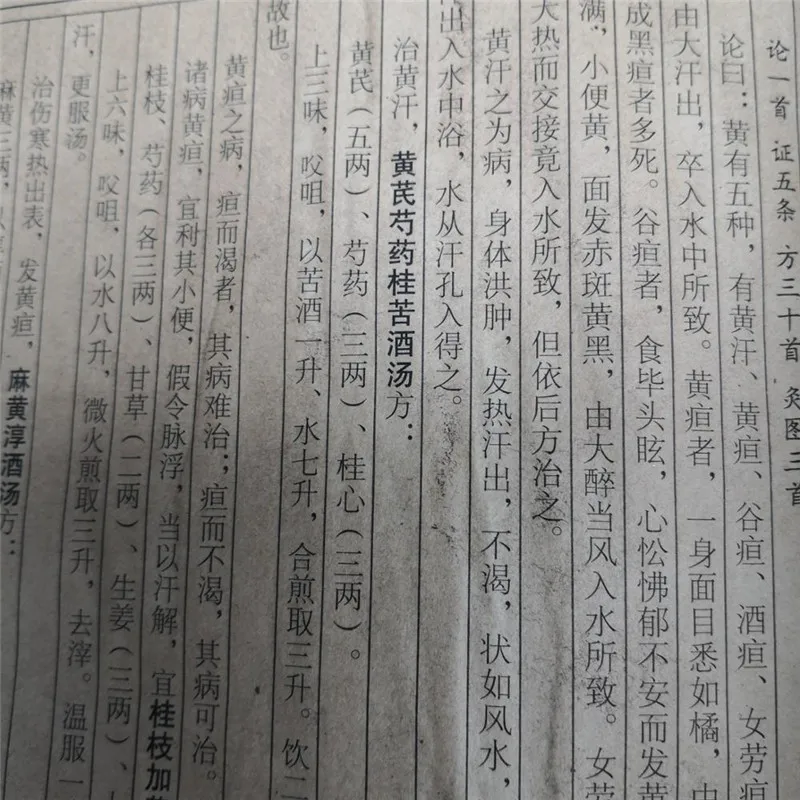 论一首 证五条 方三十首 灸图三首
论曰：黄有五种，有黄汗、黄疸、谷疸、酒疸、女劳疸
由大汗出，卒入水中所致。黄疸者，一身面目悉如橘，由
成黑疸者多死。谷疸者，食毕头眩，心忪怫郁不安而发黄
满，小便黄，面发赤斑黄黑，由大醉当风入水所致。女劳
大热而交接竟入水所致，但依后方治之。
黄汗之为病，身体洪肿，发热汗出，不渴，状如风水，
出入水中浴，水从汗孔入得之。
治黄汗，黄芪芍药桂苦酒汤方：
黄芪（五两）、芍药（三两）、桂心（三两）。
上三味，㕮咀，以苦酒一升、水七升，合煎取三升。饮二
故也。
黄疸之病，疸而渴者，其病难治；疸而不渴，其病可治。
诸病黄疸，宜利其小便，假令脉浮，当以汗解，宜桂枝加
桂枝、芍药（各三两）、甘草（二两）、生姜（三两）、
上六味，㕮咀，以水八升，微火煎取三升，去滓。温服一
汗，更服汤。
治伤寒热出表，发黄疸，麻黄淳酒汤方：
麻黄三两，以